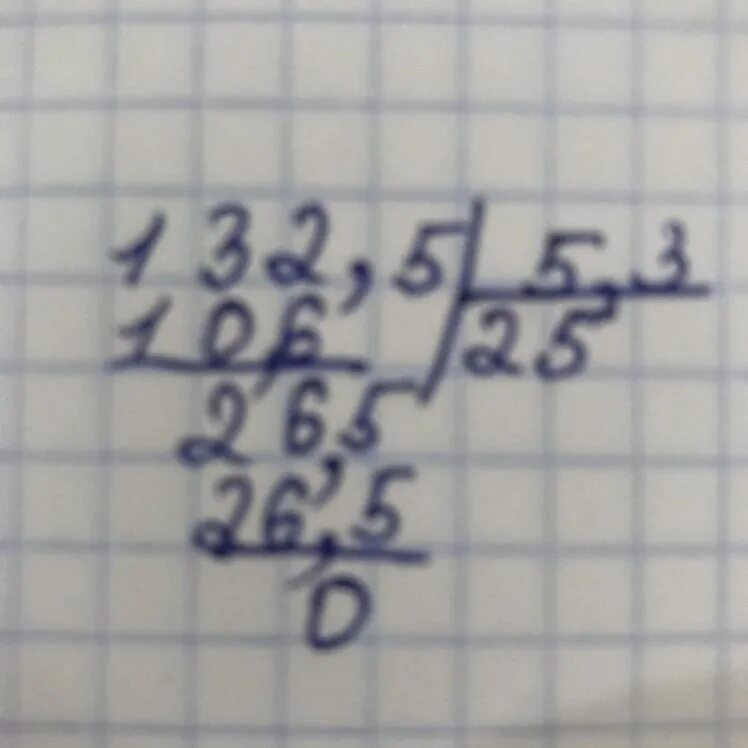 132,5 5,3
10,6 25
26,5
26,5
0